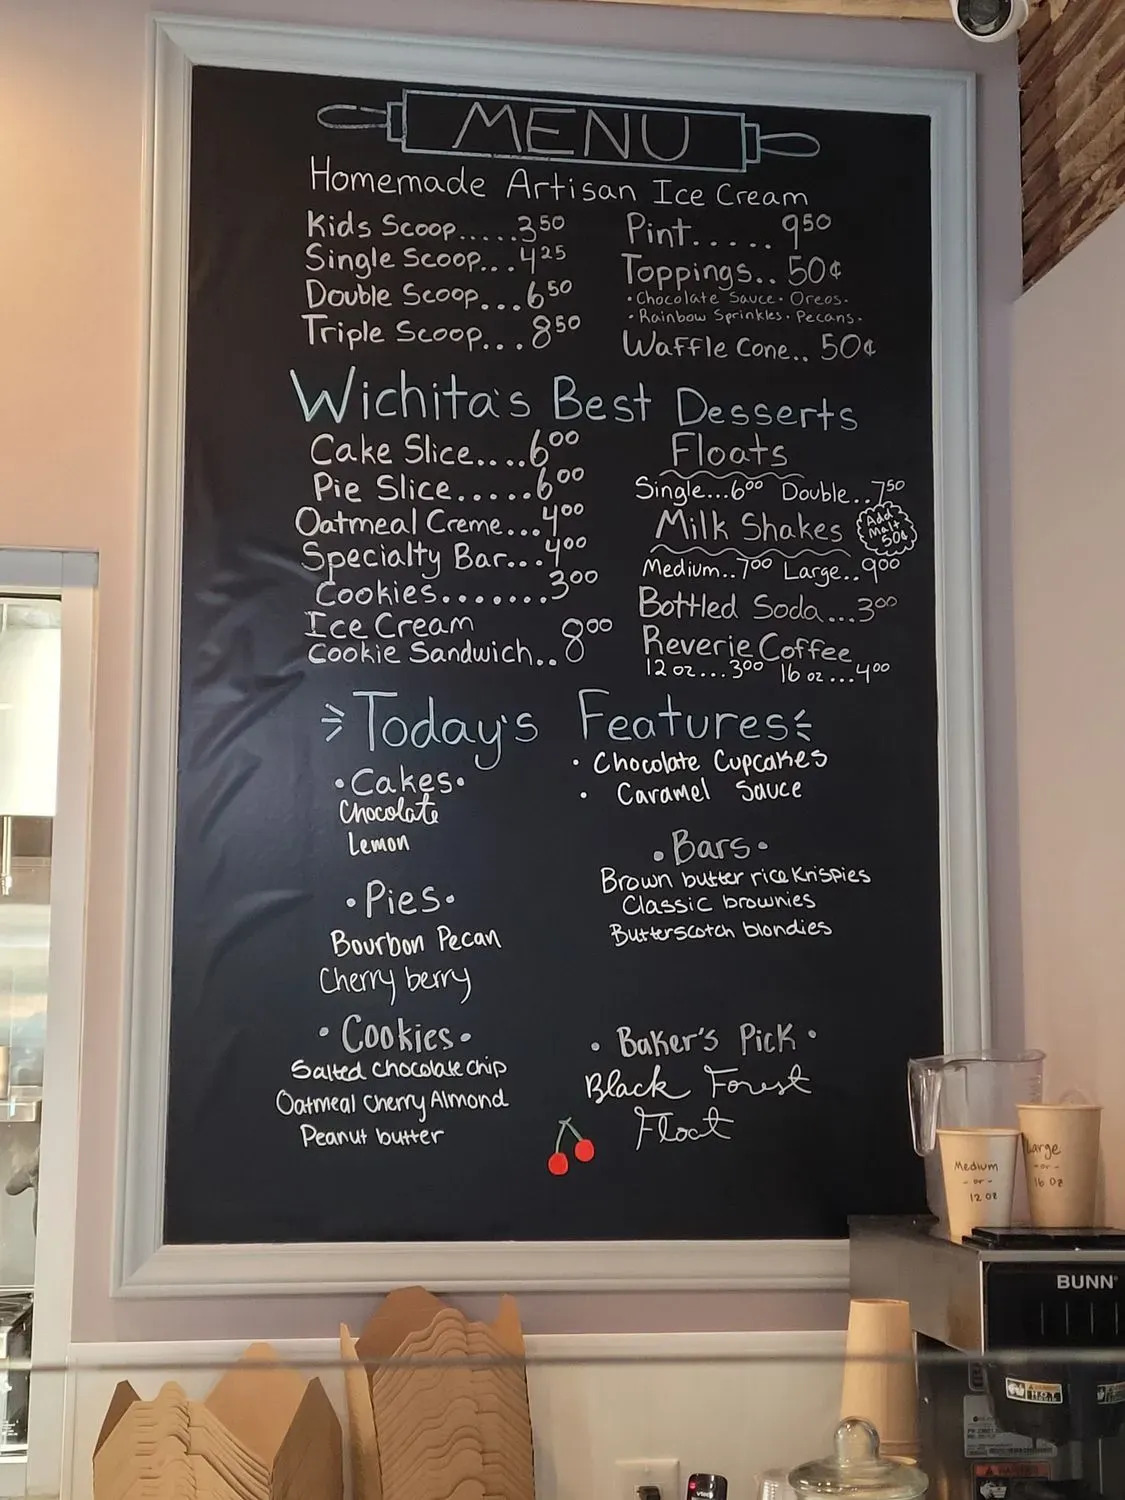 MENU
Homemade Artisan Ice Cream
Kids Scoop.....3.50
Single Scoop...4.25
Double Scoop...6.50
Triple Scoop...8.50
Pint..... 9.50
Toppings.. 50¢
• Chocolate Sauce • Oreos •
• Rainbow Sprinkles • Pecans •
Waffle Cone.. 50¢
Wichita's Best Desserts
Cake Slice....6.00
Pie Slice.....6.00
Oatmeal Creme...4.00
Specialty Bar...4.00
Cookies.......3.00
Ice Cream
Cookie Sandwich..8.00
Floats
Single...6.00 Double..7.50
Milk Shakes
Add
Malt
50¢
Medium..7.00 Large..9.00
Bottled Soda...3.00
Reverie Coffee
12 oz...3.00 16 oz...4.00
Today's Features
• Cakes •
Chocolate
Lemon
• Pies •
Bourbon Pecan
Cherry berry
• Cookies •
Salted chocolate chip
Oatmeal Cherry Almond
Peanut butter
• Chocolate Cupcakes
• Caramel Sauce
• Bars •
Brown butter rice Krispies
Classic brownies
Butterscotch blondies
• Baker's Pick •
Black Forest
Float
Medium
- or -
12 oz
Large
- or -
16 oz
BUNN